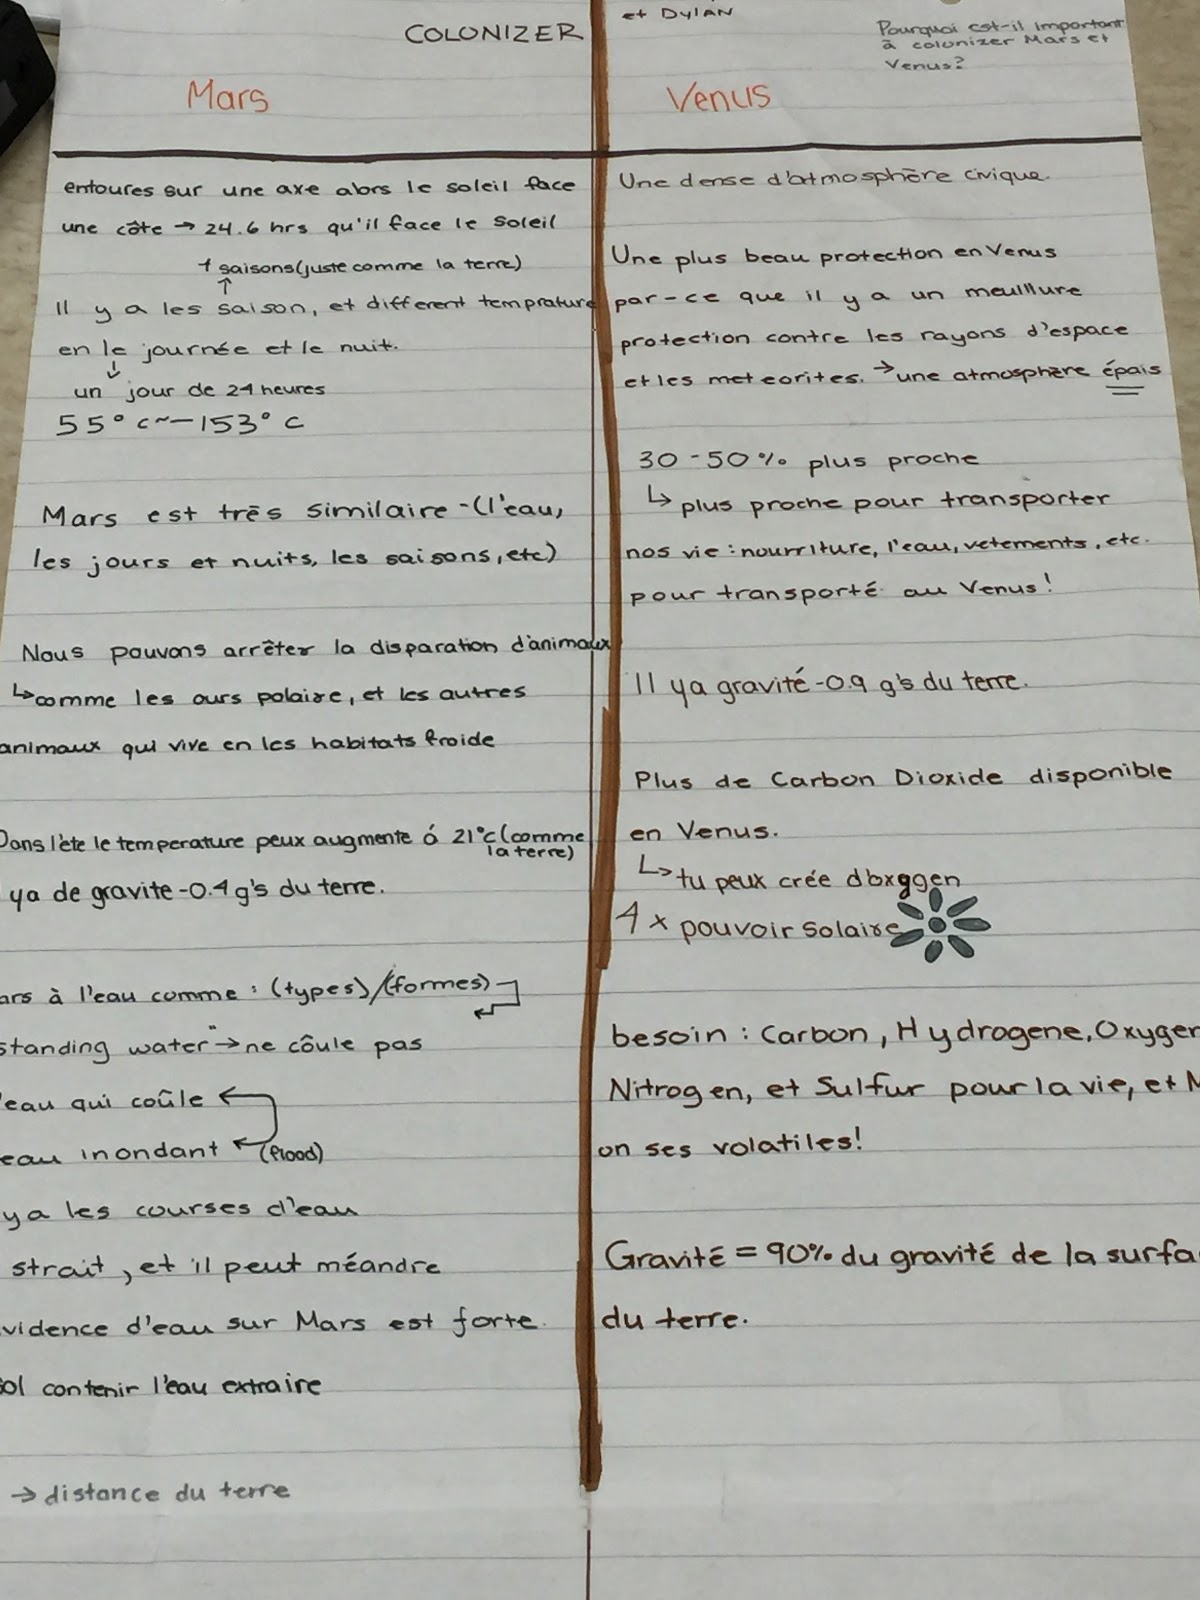 COLONIZER
et DylAN
Pourquoi est-il important
à colonizer Mars et
Venus?
Mars
entoures sur une axe abrs le soleil face
une côte → 24.6 hrs qu'il face le soleil
4 saisons (juste comme la terre)
↑
Il y a les saison, et different temprature
en le journée et le nuit.
↓
un jour de 24 heures
55°c~-153°c
Mars est très similaire - (l'eau,
les jours et nuits, les saisons, etc)
Nous pouvons arrêter la disparation d'animaux
↳ comme les ours polaire, et les autres
animaux qui vive en les habitats froide
Dans l'ète le temperature peux augmente ó 21°c (comme
la terre)
ya de gravite - 0.4 g's du terre.
ars à l'eau comme : (types)/(formes)
standing water" → ne côule pas
'eau qui coûle ←
eau inondant ← (flood)
y a les courses d'eau
strait, et il peut méandre
vidence d'eau sur Mars est forte.
sol contenir l'eau extraire
→ distance du terre
Venus
Une dense d'atmosphère civique.
Une plus beau protection en Venus
par-ce que il y a un meulllure
protection contre les rayons d'espace
et les meteorites. → une atmosphère épais
30 - 50% plus proche
↳ plus proche pour transporter
nos vie : nourriture, l'eau, vetements, etc.
pour transporté au Venus!
Il ya gravité - 0.9 g's du terre.
Plus de Carbon Dioxide disponible
en Venus.
↳ tu peux crée d'oxggen
4 x pouvoir solaire
besoin : Carbon, Hydrogene, Oxygen
Nitrogen, et Sulfur pour la vie, et M
on ses volatiles!
Gravité = 90% du gravité de la surfa
du terre.